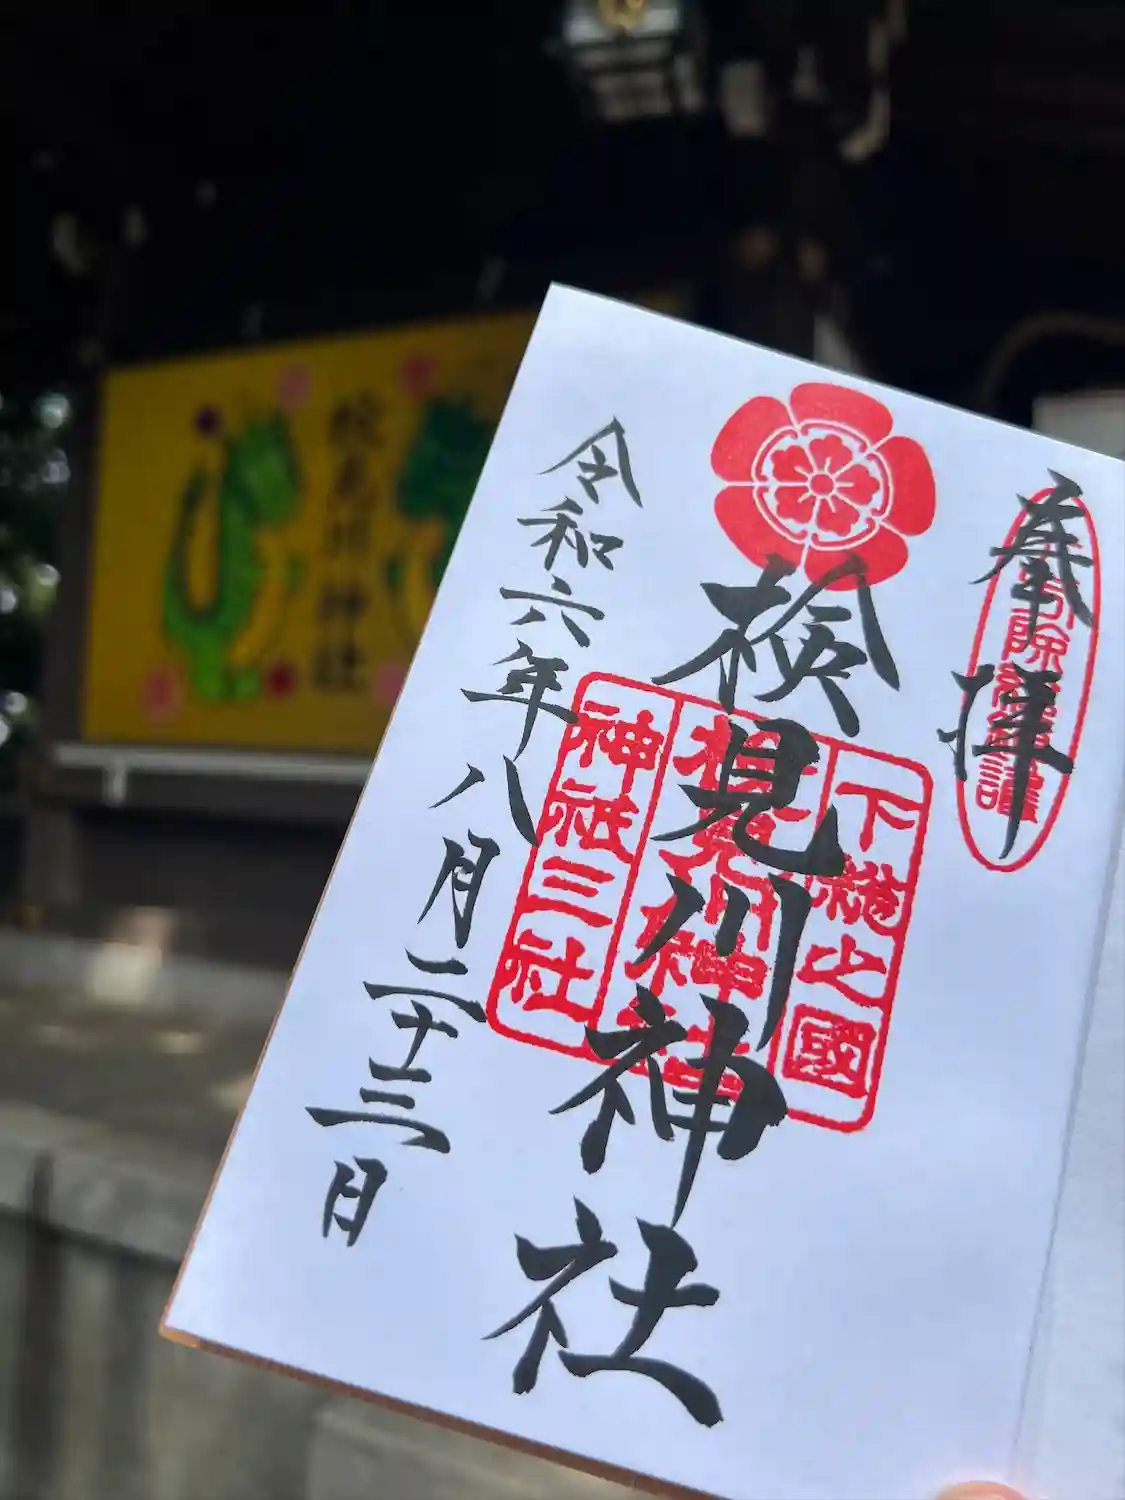 奉拝
八方除総鎮護
検見川神社
下総之國
検見川神社
神祇三社
令和六年八月二十三日
検見川神社